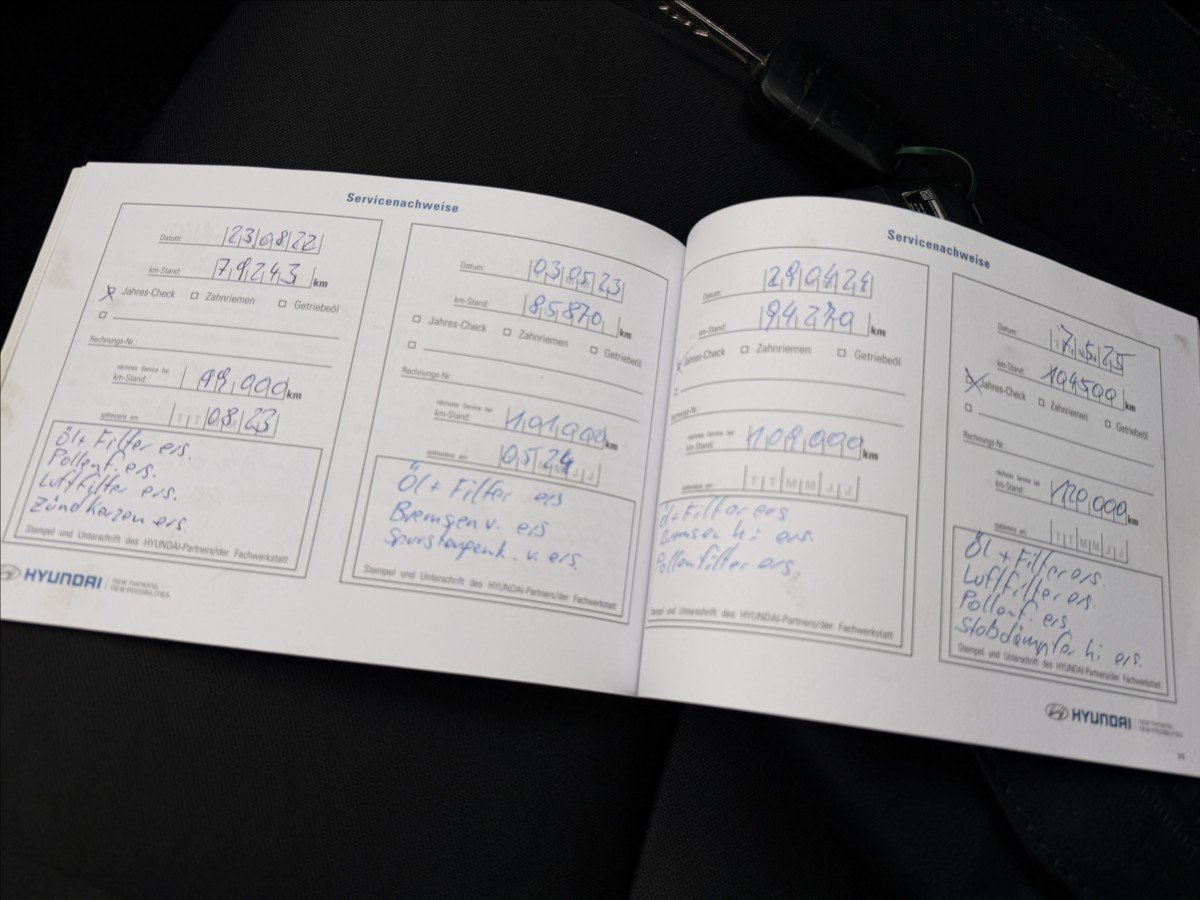 Servicenachweise
Datum: 23 08 22
km-Stand: 79243 km
Jahres-Check Zahnriemen Getriebeöl
Rechnungs-Nr.:
nächstes Service bei
km-Stand: 99.000 km
spätestens am: T T 08 23
Öl + Filter ers.
Pollenf. ers.
Luftfilter ers.
Zündkerzen ers.
Stempel und Unterschrift des HYUNDAI-Partners/der Fachwerkstatt
HYUNDAI NEW THINKING.
NEW POSSIBILITIES.
Datum: 03 05 23
km-Stand: 85870 km
Jahres-Check Zahnriemen Getriebeöl
Rechnungs-Nr.
nächstes Service bei
km-Stand: 101.000 km
spätestens am: 05 24 J J
Öl + Filter ers
Bremsen v. ers
Spurstangenk. v. ers.
Stempel und Unterschrift des HYUNDAI-Partners/der Fachwerkstatt
Servicenachweise
Datum: 29 04 24
km-Stand: 94270 km
Jahres-Check Zahnriemen Getriebeöl
Rechnungs-Nr.
nächstes Service bei
km-Stand: 109.000 km
spätestens am: T T M M J J
Öl + Filter ers
Bremsen hi ers.
Pollenfilter ers.
Stempel und Unterschrift des HYUNDAI-Partners/der Fachwerkstatt
Datum: 7.5.25
km-Stand: 104500 km
Jahres-Check Zahnriemen Getriebeöl
Rechnungs-Nr.
nächstes Service bei
km-Stand: 120.000 km
spätestens am: T T M M J J
Öl + Filter ers.
Luftfilter ers.
Pollenf. ers.
Stoßdämpfer hi ers.
Stempel und Unterschrift des HYUNDAI-Partners/der Fachwerkstatt
HYUNDAI NEW THINKING.
NEW POSSIBILITIES.